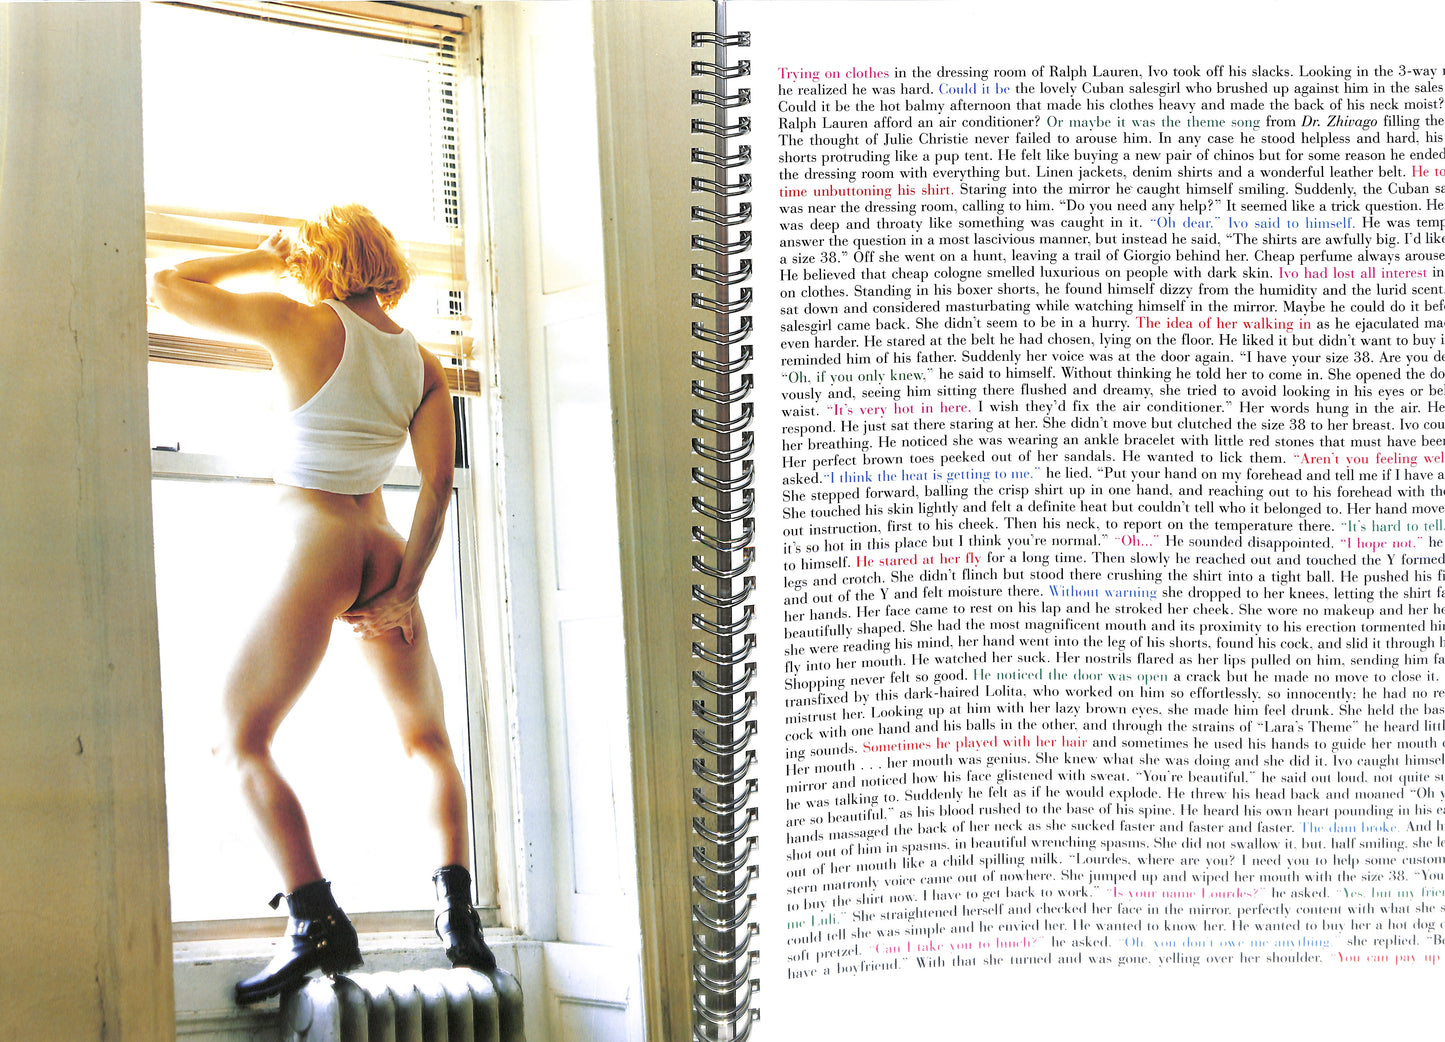 Trying on clothes in the dressing room of Ralph Lauren, Ivo took off his slacks. Looking in the 3-way
he realized he was hard. Could it be the lovely Cuban salesgirl who brushed up against him in the sales
Could it be the hot balmy afternoon that made his clothes heavy and made the back of his neck moist?
Ralph Lauren afford an air conditioner? Or maybe it was the theme song from Dr. Zhivago filling the
The thought of Julie Christie never failed to arouse him. In any case he stood helpless and hard, his
shorts protruding like a pup tent. He felt like buying a new pair of chinos but for some reason he ended
the dressing room with everything but. Linen jackets, denim shirts and a wonderful leather belt. He to
time unbuttoning his shirt. Staring into the mirror he caught himself smiling. Suddenly, the Cuban sa
was near the dressing room, calling to him. “Do you need any help?” It seemed like a trick question. He
was deep and throaty like something was caught in it. “Oh dear,” Ivo said to himself. He was temp
answer the question in a most lascivious manner, but instead he said, “The shirts are awfully big. I’d like
a size 38.” Off she went on a hunt, leaving a trail of Giorgio behind her. Cheap perfume always arouse
He believed that cheap cologne smelled luxurious on people with dark skin. Ivo had lost all interest in
on clothes. Standing in his boxer shorts, he found himself dizzy from the humidity and the lurid scent.
sat down and considered masturbating while watching himself in the mirror. Maybe he could do it bef
salesgirl came back. She didn’t seem to be in a hurry. The idea of her walking in as he ejaculated ma
even harder. He stared at the belt he had chosen, lying on the floor. He liked it but didn’t want to buy i
reminded him of his father. Suddenly her voice was at the door again. “I have your size 38. Are you de
“Oh, if you only knew,” he said to himself. Without thinking he told her to come in. She opened the do
vously and, seeing him sitting there flushed and dreamy, she tried to avoid looking in his eyes or be
waist. “It’s very hot in here. I wish they’d fix the air conditioner.” Her words hung in the air. He
respond. He just sat there staring at her. She didn’t move but clutched the size 38 to her breast. Ivo cou
her breathing. He noticed she was wearing an ankle bracelet with little red stones that must have been
Her perfect brown toes peeked out of her sandals. He wanted to lick them. “Aren’t you feeling wel
asked.“I think the heat is getting to me,” he lied. “Put your hand on my forehead and tell me if I have a
She stepped forward, balling the crisp shirt up in one hand, and reaching out to his forehead with the
She touched his skin lightly and felt a definite heat but couldn’t tell who it belonged to. Her hand move
out instruction, first to his cheek. Then his neck, to report on the temperature there. “It’s hard to tell,
it’s so hot in this place but I think you’re normal.” “Oh...” He sounded disappointed. “I hope not,” he
to himself. He stared at her fly for a long time. Then slowly he reached out and touched the Y formed
legs and crotch. She didn’t flinch but stood there crushing the shirt into a tight ball. He pushed his fi
and out of the Y and felt moisture there. Without warning she dropped to her knees, letting the shirt fa
her hands. Her face came to rest on his lap and he stroked her cheek. She wore no makeup and her he
beautifully shaped. She had the most magnificent mouth and its proximity to his erection tormented him
she were reading his mind, her hand went into the leg of his shorts, found his cock, and slid it through h
fly into her mouth. He watched her suck. Her nostrils flared as her lips pulled on him, sending him fa
Shopping never felt so good. He noticed the door was open a crack but he made no move to close it.
transfixed by this dark-haired Lolita, who worked on him so effortlessly, so innocently; he had no re
mistrust her. Looking up at him with her lazy brown eyes, she made him feel drunk. She held the bas
cock with one hand and his balls in the other, and through the strains of “Lara’s Theme” he heard littl
ing sounds. Sometimes he played with her hair and sometimes he used his hands to guide her mouth
Her mouth . . . her mouth was genius. She knew what she was doing and she did it. Ivo caught himsel
mirror and noticed how his face glistened with sweat. “You’re beautiful,” he said out loud, not quite su
he was talking to. Suddenly he felt as if he would explode. He threw his head back and moaned “Oh y
are so beautiful,” as his blood rushed to the base of his spine. He heard his own heart pounding in his ea
hands massaged the back of her neck as she sucked faster and faster and faster. The dam broke. And h
shot out of him in spasms, in beautiful wrenching spasms. She did not swallow it, but, half smiling, she le
out of her mouth like a child spilling milk. “Lourdes, where are you? I need you to help some custom
stern matronly voice came out of nowhere. She jumped up and wiped her mouth with the size 38. “You
to buy the shirt now. I have to get back to work.” “Is your name Lourdes?” he asked. “Yes, but my frien
me Luli.” She straightened herself and checked her face in the mirror, perfectly content with what she s
could tell she was simple and he envied her. He wanted to know her. He wanted to buy her a hot dog
soft pretzel. “Can I take you to lunch?” he asked. “Oh, you don’t owe me anything,” she replied. “Be
have a boyfriend.” With that she turned and was gone, yelling over her shoulder, “You can pay up